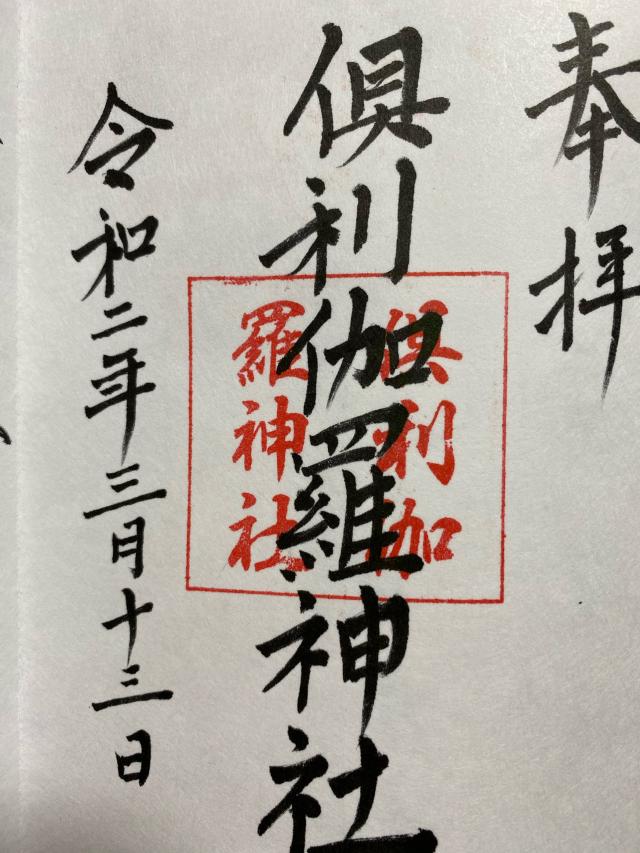 奉拝
倶利伽羅神社
倶利伽
羅神社
令和二年三月十三日